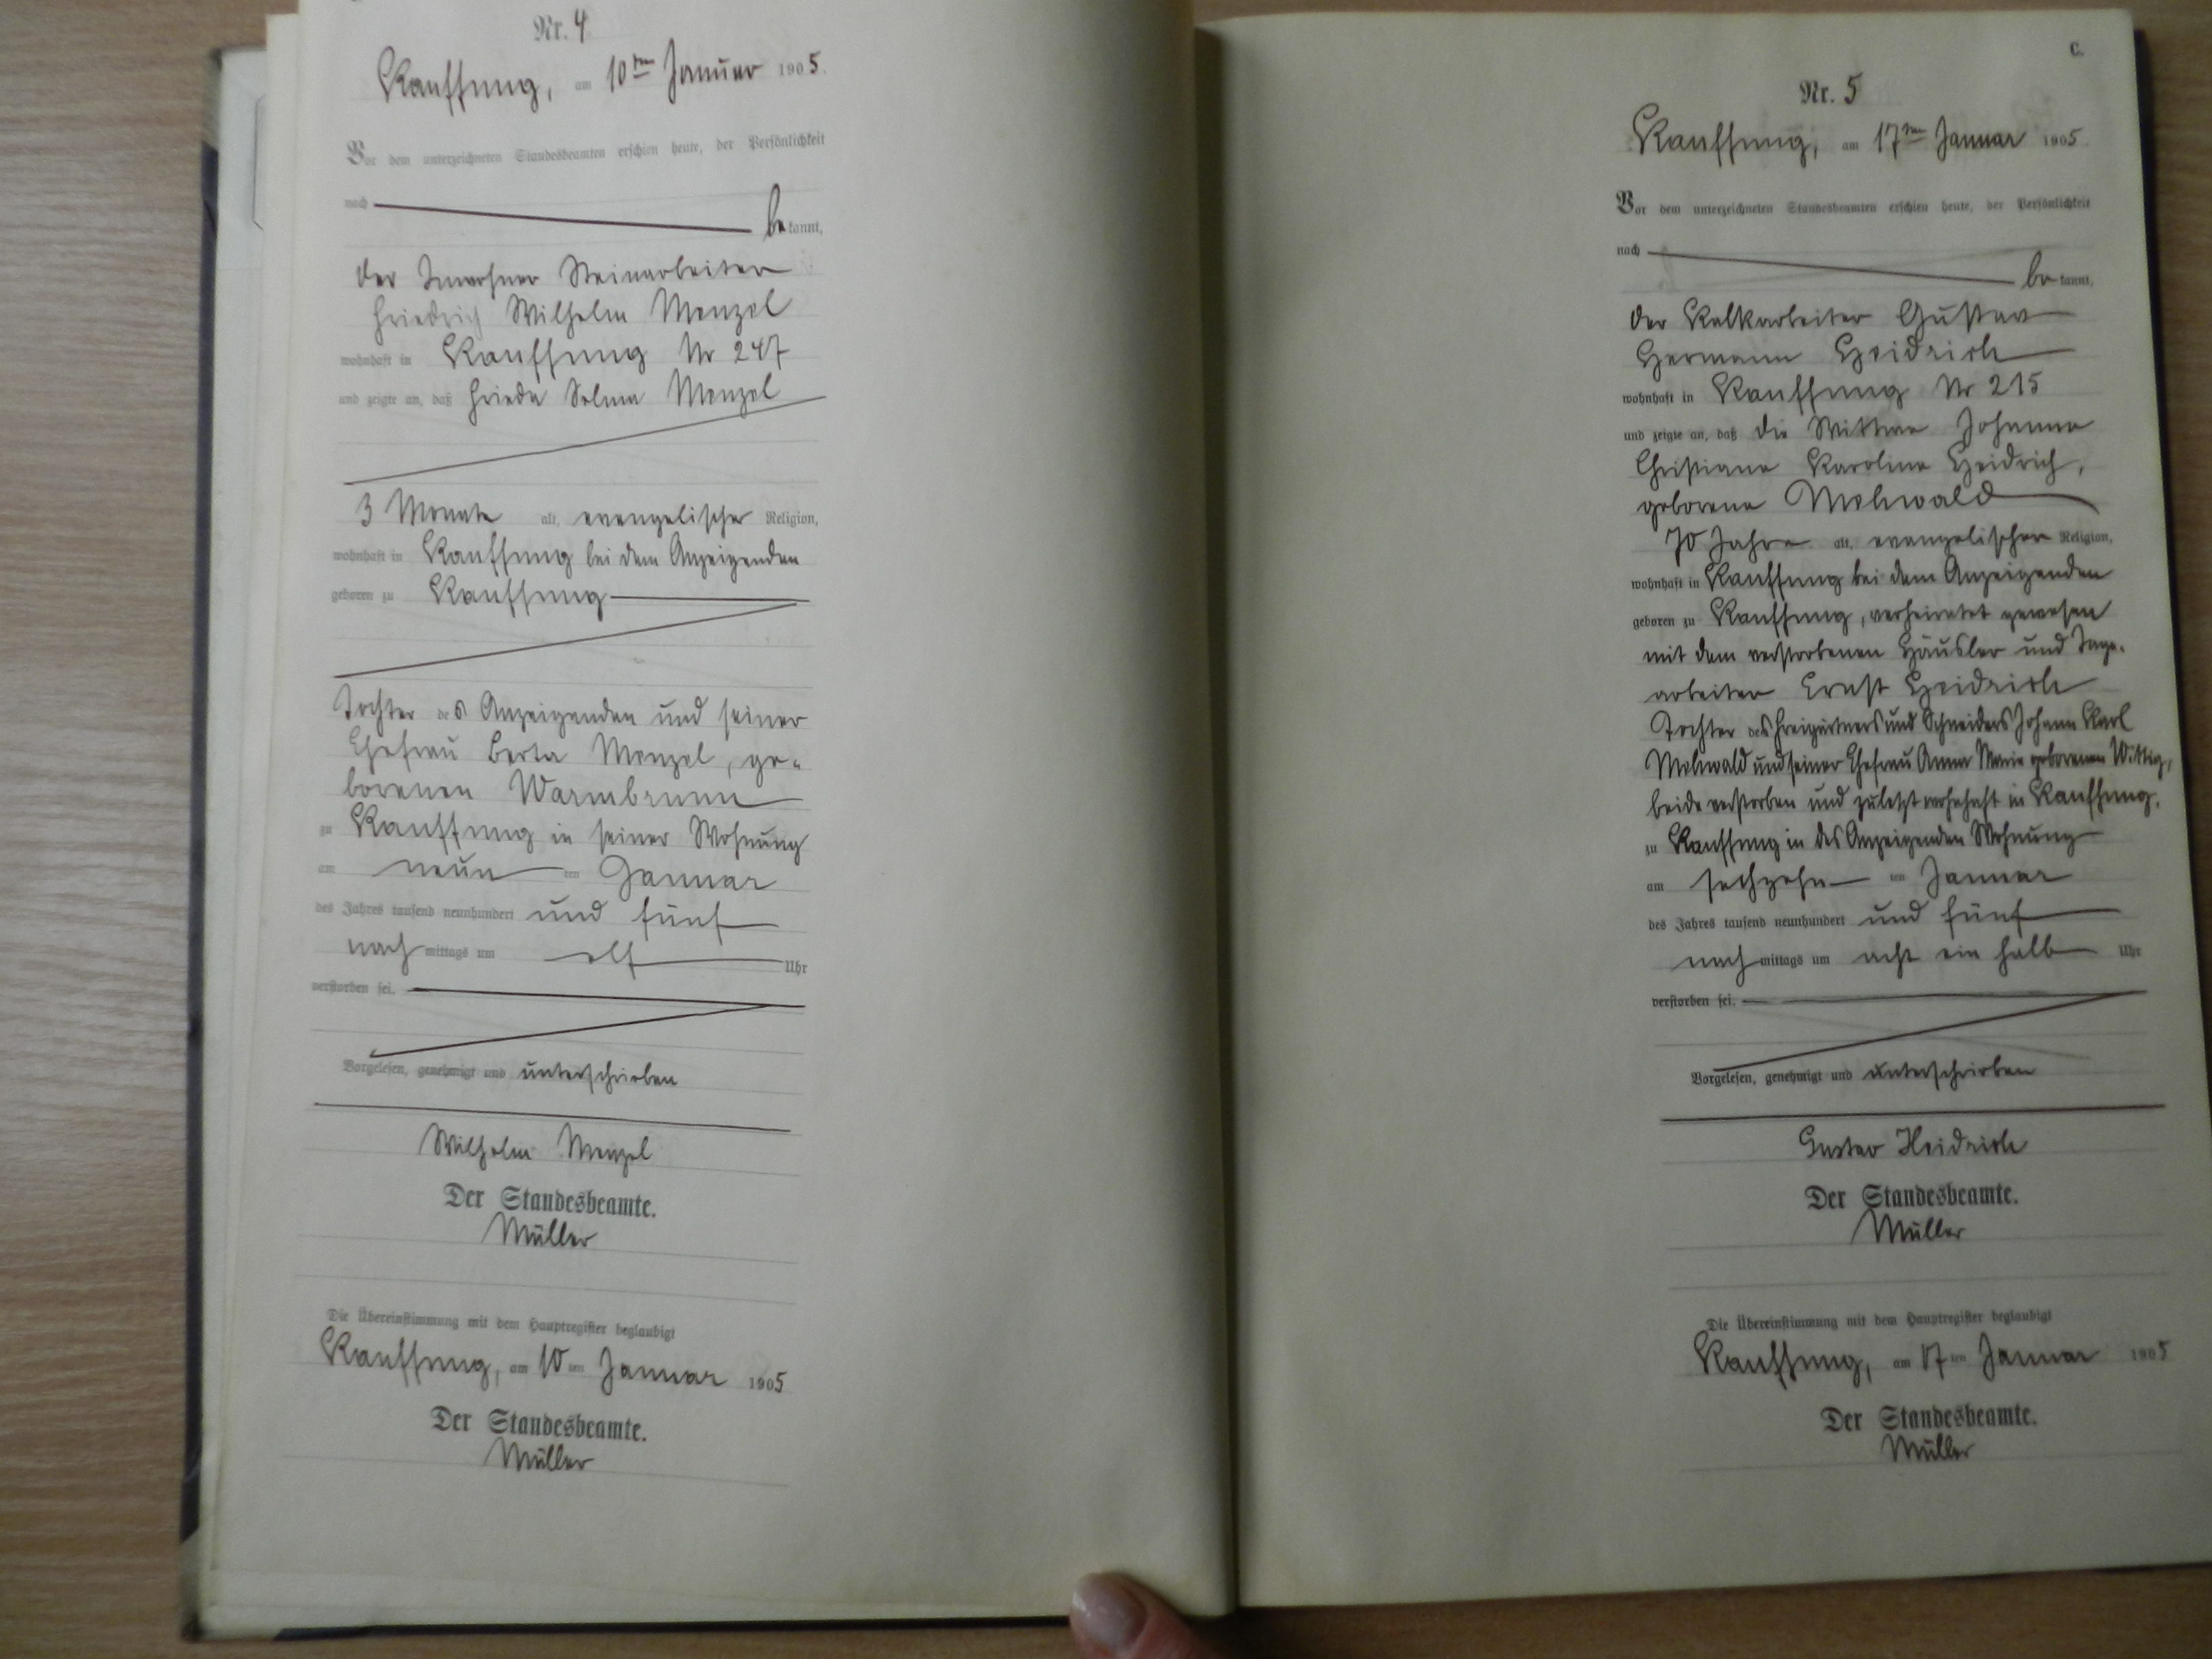 Nr. 4
Kauffung, am 10ten Januar 1905.
Vor dem unterzeichneten Standesbeamten erschien heute, der Persönlichkeit
nach bekannt,
der Inwohner Steinarbeiter
Friedrich Wilhelm Menzel
wohnhaft in Kauffung Nr 247
und zeigte an, daß Frieda Selma Menzel
3 Monate alt, evangelischer Religion,
wohnhaft in Kauffung bei dem Anzeigenden
geboren zu Kauffung
Tochter des Anzeigenden und seiner
Ehefrau Berta Menzel, ge-
borenen Warmbrunn
zu Kauffung in seiner Wohnung
am neun ten Januar
des Jahres tausend neunhundert und fünf
nachmittags um elf Uhr
verstorben sei.
Vorgelesen, genehmigt und unterschrieben
Wilhelm Menzel
Der Standesbeamte.
Müller
Die Übereinstimmung mit dem Hauptregister beglaubigt
Kauffung, am 10ten Januar 1905
Der Standesbeamte.
Müller
C.
Nr. 5
Kauffung, am 17ten Januar 1905.
Vor dem unterzeichneten Standesbeamten erschien heute, der Persönlichkeit
nach bekannt,
der Kalkarbeiter Gustav
Hermann Heidrich
wohnhaft in Kauffung Nr 215
und zeigte an, daß die Wittwe Johanne
Christiane Karoline Heidrich,
geborene Mehwald
70 Jahre alt, evangelischer Religion,
wohnhaft in Kauffung bei dem Anzeigenden
geboren zu Kauffung, verheiratet gewesen
mit dem verstorbenen Häusler und Tage-
arbeiter Ernst Heidrich
Tochter des Freigärtners und Schneiders Johann Karl
Mehwald und seiner Ehefrau Anna Marie geborenen Wittig,
beide verstorben und zuletzt wohnhaft in Kauffung,
zu Kauffung in des Anzeigenden Wohnung
am sechzehn ten Januar
des Jahres tausend neunhundert und fünf
nachmittags um acht ein halb Uhr
verstorben sei.
Vorgelesen, genehmigt und unterschrieben
Gustav Heidrich
Der Standesbeamte.
Müller
Die Übereinstimmung mit dem Hauptregister beglaubigt
Kauffung, am 17ten Januar 1905
Der Standesbeamte.
Müller